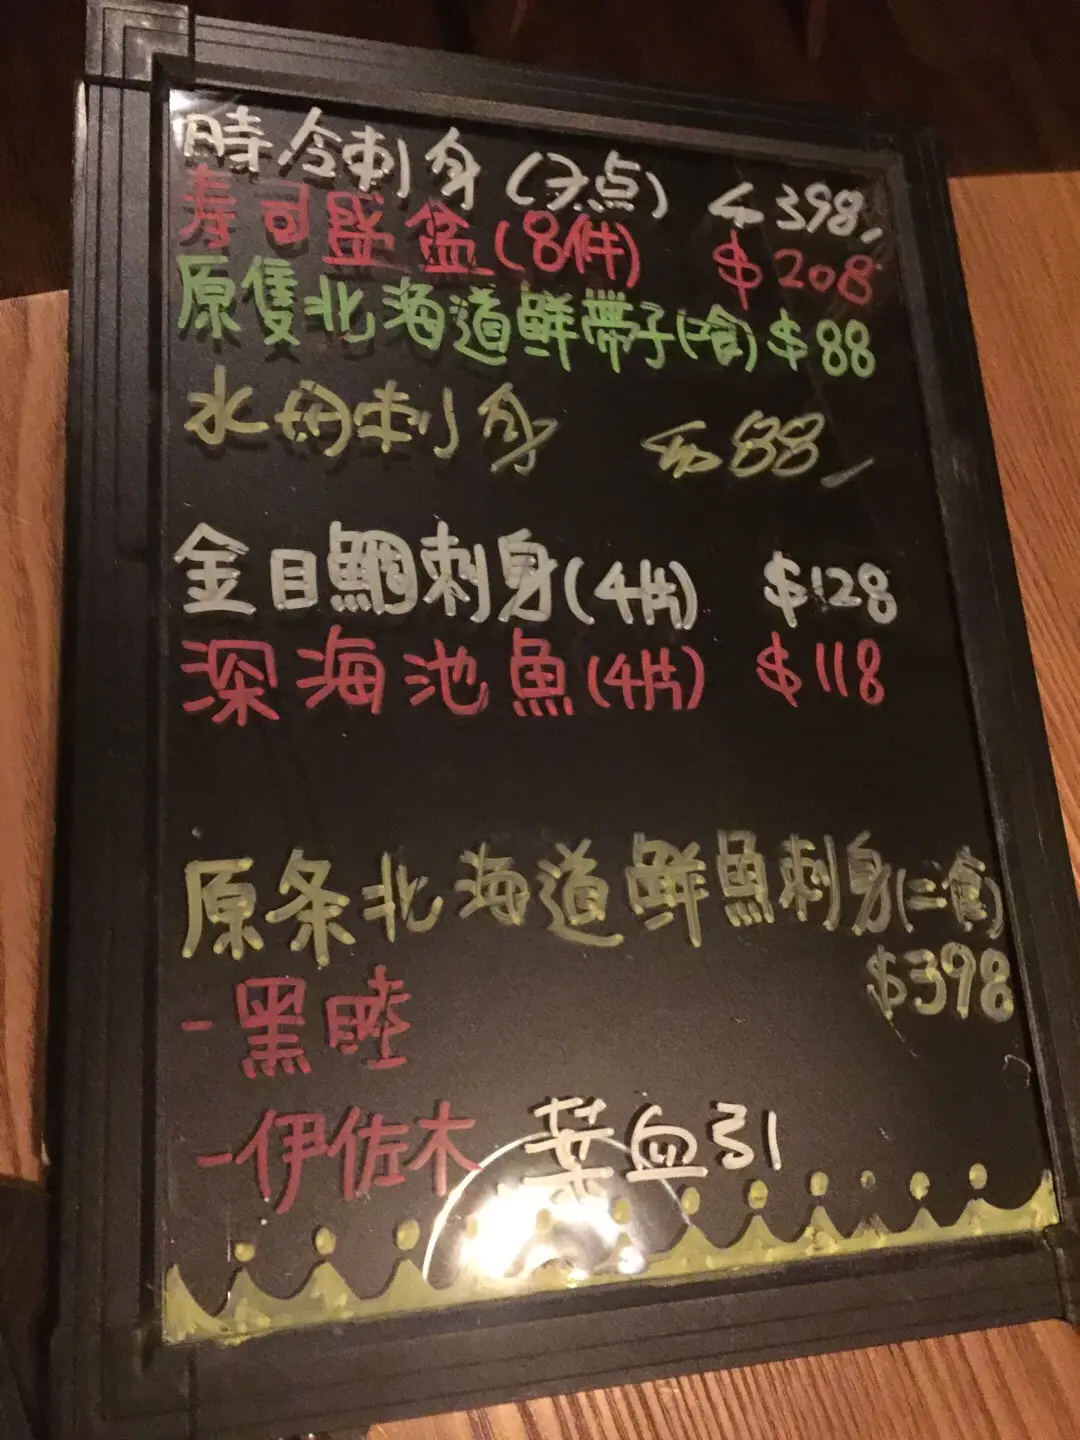 時令刺身(7点) $398
寿司盛盆(8件) $208
原隻北海道鮮帶子(二食) $88
水母刺身 $88
金目鯛刺身(4片) $128
深海池魚(4片) $118
原条北海道鮮魚刺身(二食)
$398
-黑睦
-伊佐木 葉血引